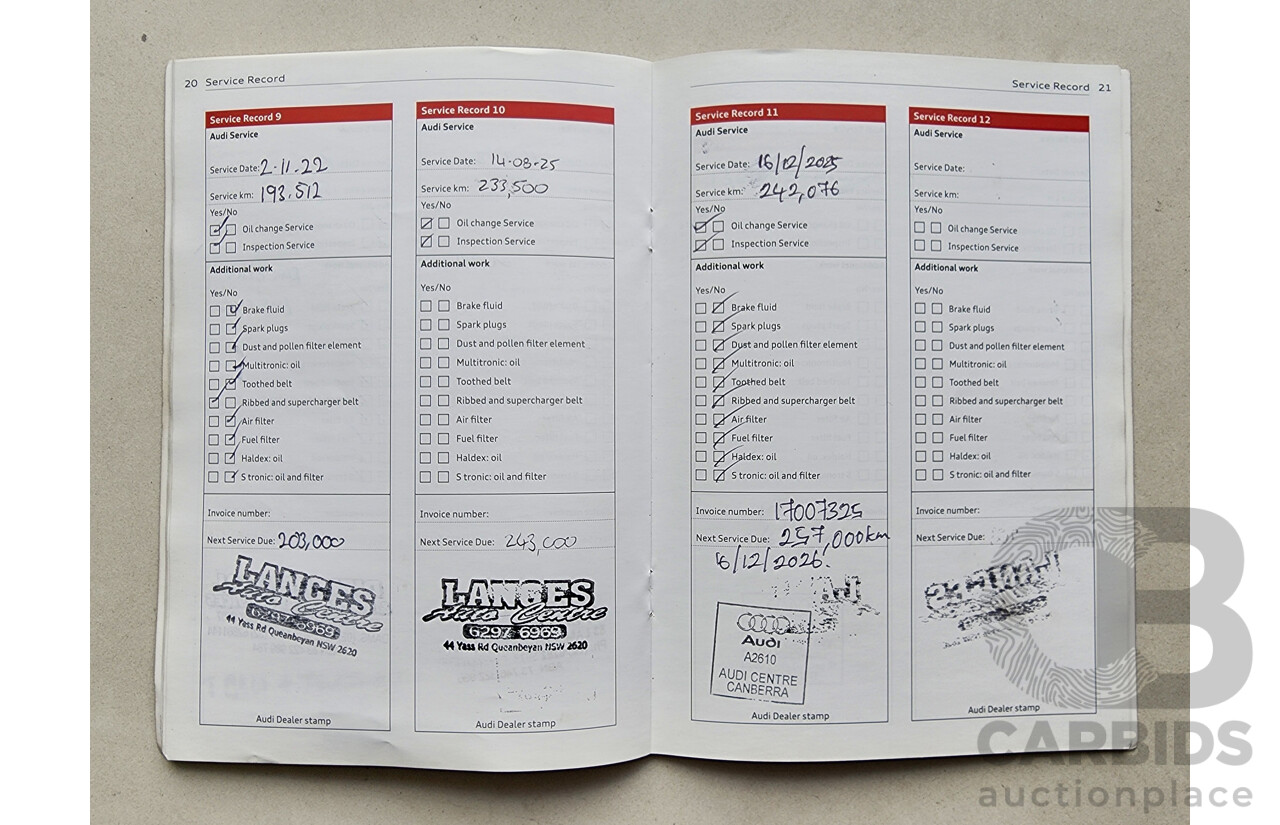 20 Service Record
Service Record 9
Audi Service
Service Date: 2-11.22
Service km: 193.512
Yes/No
Oil change Service
Inspection Service
Additional work
Yes/No
Brake fluid
Spark plugs
Dust and pollen filter element
Multitronic: oil
Toothed belt
Ribbed and supercharger belt
Air filter
Fuel filter
Haldex: oil
S tronic: oil and filter
Invoice number:
Next Service Due: 203,000
LANGES
Auto Centre
6297 6969
44 Yass Rd Queanbeyan NSW 2620
Audi Dealer stamp
Service Record 10
Audi Service
Service Date: 14-08-25
Service km: 233,500
Yes/No
Oil change Service
Inspection Service
Additional work
Yes/No
Brake fluid
Spark plugs
Dust and pollen filter element
Multitronic: oil
Toothed belt
Ribbed and supercharger belt
Air filter
Fuel filter
Haldex: oil
S tronic: oil and filter
Invoice number:
Next Service Due: 243,000
LANGES
Auto Centre
6297 6969
44 Yass Rd Queanbeyan NSW 2620
Audi Dealer stamp
Service Record 21
Service Record 11
Audi Service
Service Date: 16/12/2025
Service km: 242,076
Yes/No
Oil change Service
Inspection Service
Additional work
Yes/No
Brake fluid
Spark plugs
Dust and pollen filter element
Multitronic: oil
Toothed belt
Ribbed and supercharger belt
Air filter
Fuel filter
Haldex: oil
S tronic: oil and filter
Invoice number: 17007325
Next Service Due: 257,000km
16/12/2026.
Audi
A2610
AUDI CENTRE
CANBERRA
Audi Dealer stamp
Service Record 12
Audi Service
Service Date:
Service km:
Yes/No
Oil change Service
Inspection Service
Additional work
Yes/No
Brake fluid
Spark plugs
Dust and pollen filter element
Multitronic: oil
Toothed belt
Ribbed and supercharger belt
Air filter
Fuel filter
Haldex: oil
S tronic: oil and filter
Invoice number:
Next Service Due:
Audi Dealer stamp
CARBIDS
auctionplace